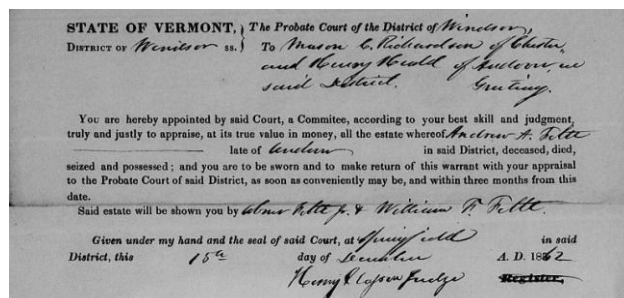 STATE OF VERMONT, } The Probate Court of the District of Windsor,
DISTRICT OF Windsor ss. } To Mason C. Richardson of Chester,
and Henry Heald of Andover, in
said District. Greeting.
You are hereby appointed by said Court, a Commitee, according to your best skill and judgment,
truly and justly to appraise, at its true value in money, all the estate whereof Andrew A. Felt
late of Andover in said District, deceased, died,
seized and possessed; and you are to be sworn and to make return of this warrant with your appraisal
to the Probate Court of said District, as soon as conveniently may be, and within three months from this
date.
Said estate will be shown you by Abner Felt Jr. & William F. Felt.
Given under my hand and the seal of said Court, at Springfield in said
District, this 15th day of December A. D. 1862
Henry Closson Judge Register.